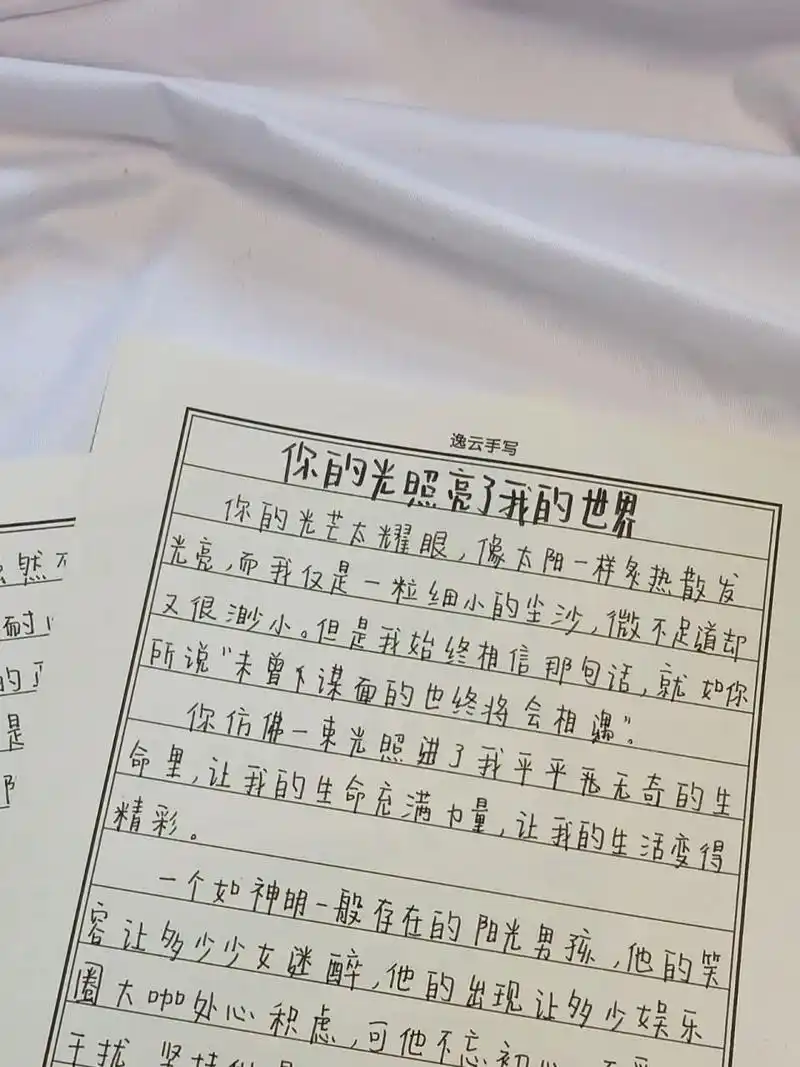 逸云手写
你的光照亮了我的世界
你的光芒太耀眼，像太阳一样炙热散发
光亮，而我仅是一粒细小的尘沙，微不足道却
又很渺小。但是我始终相信那句话，就如你
所说“未曾下谋面的也终将会相遇”。
你仿佛一束光照进了我平平无奇的生
命里，让我的生命充满力量，让我的生活变得
精彩。
一个如神明一般存在的阳光男孩，他的笑
容让多少少女迷醉，他的出现让多少娱乐
圈大咖处心积虑，可他不忘初心
干扰 坚持
然不
耐
的
是